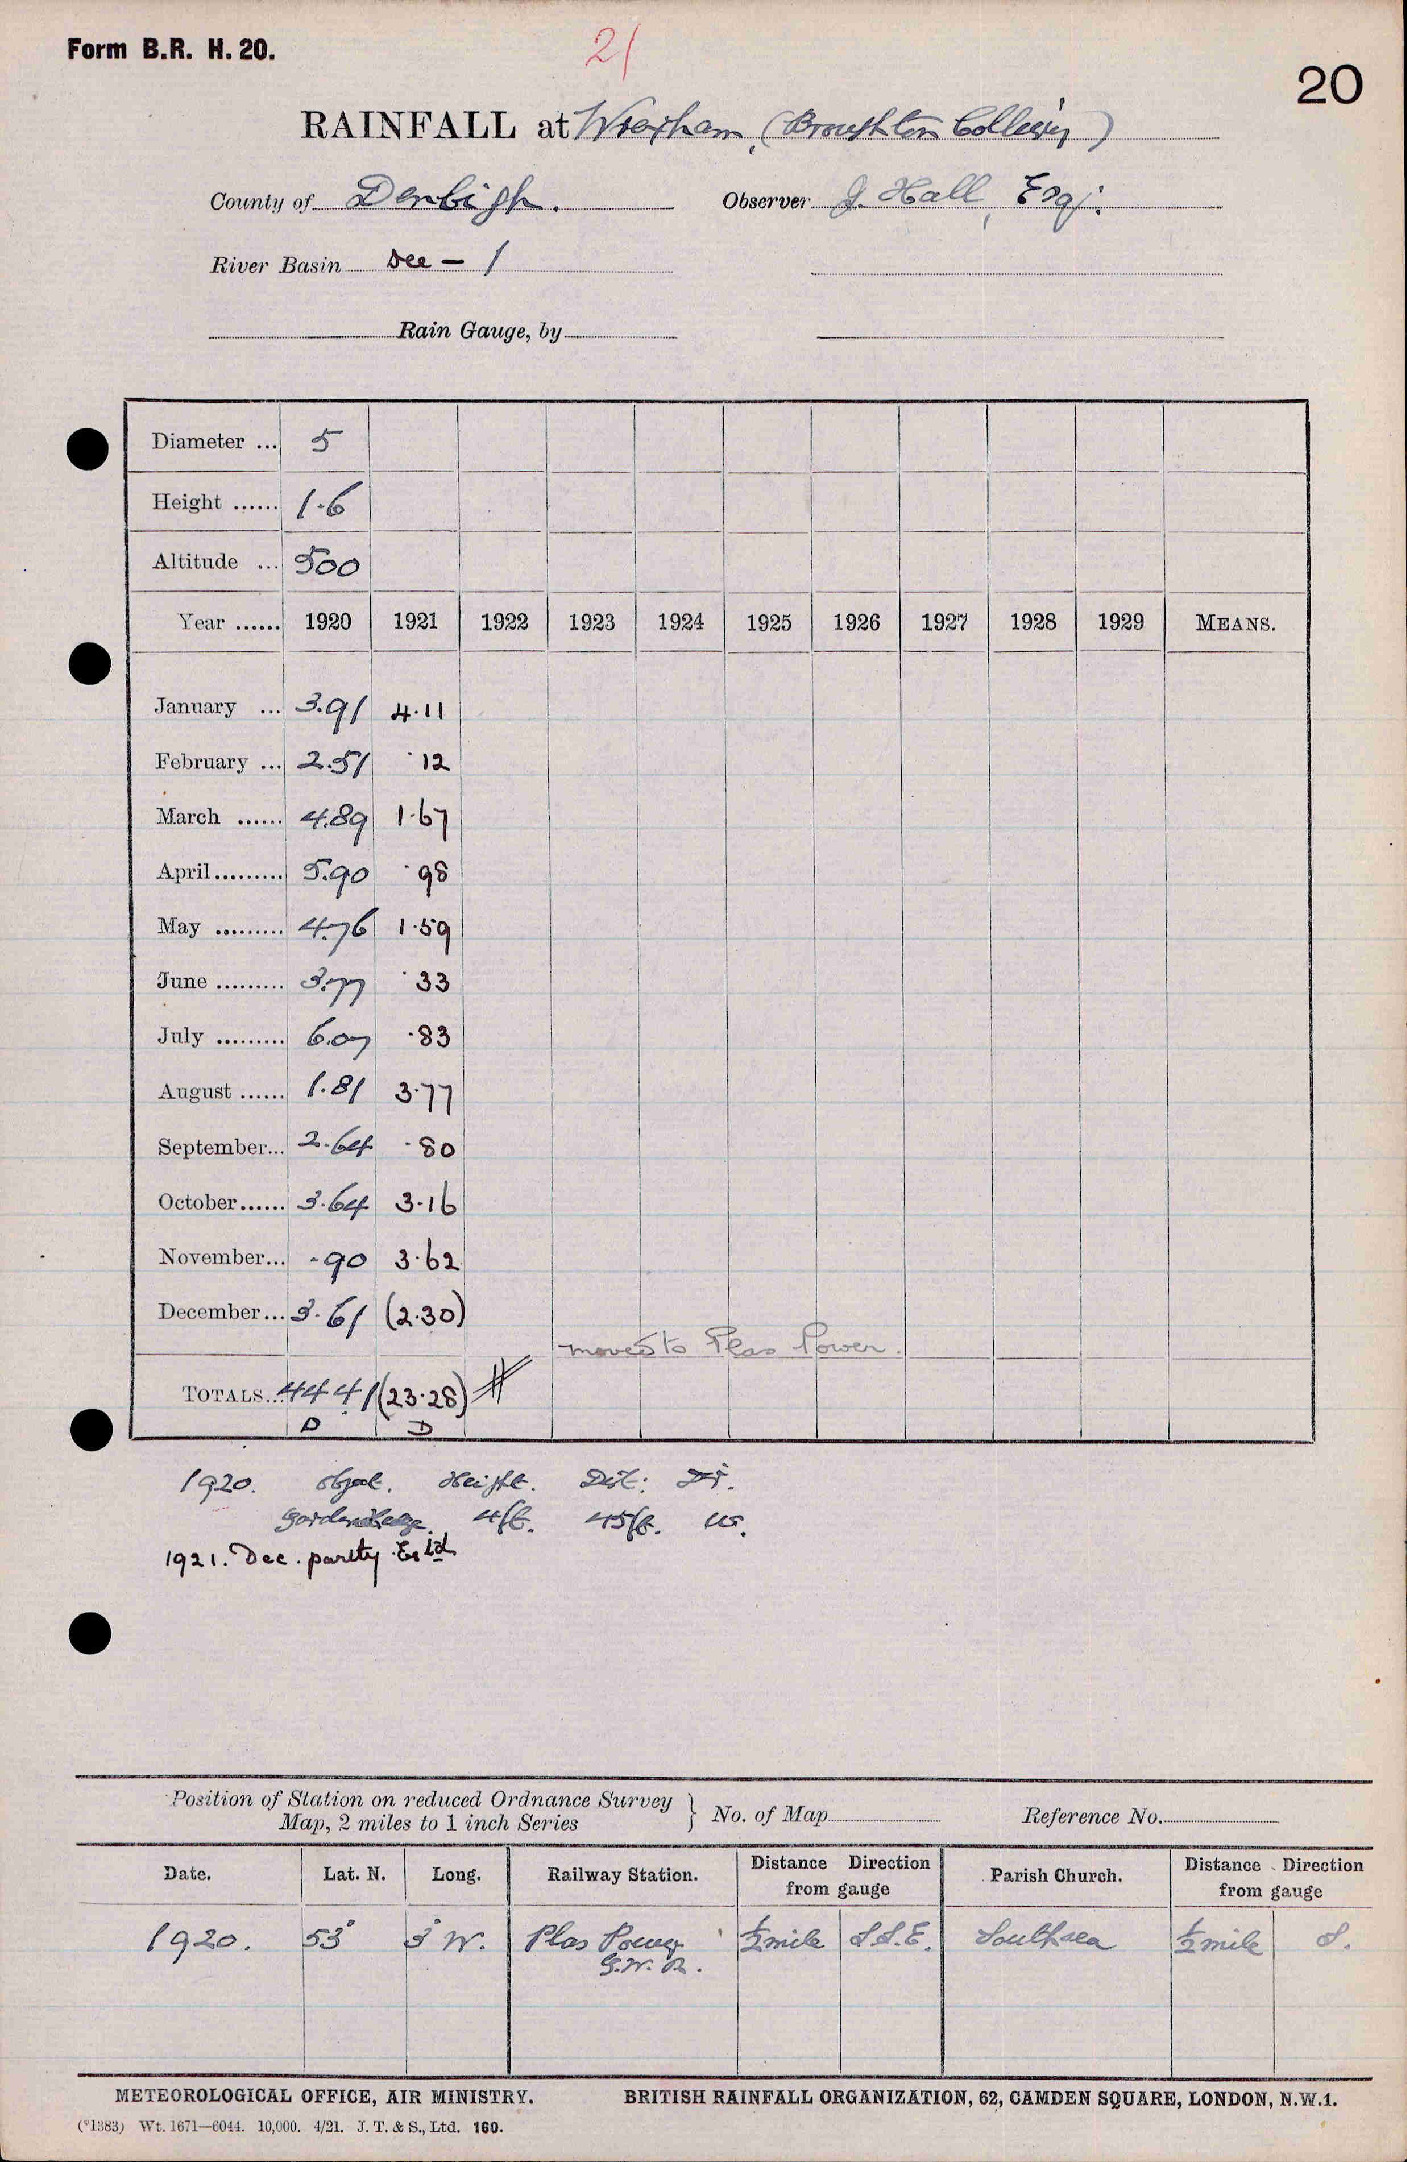 Form B.R. H. 20.
21
20
RAINFALL at Wrexham, (Broughton Colliery)
County of Denbigh. Observer J. Hall, Esq.
River Basin Dee – 1
Rain Gauge, by
Diameter ... 5
Height ...... 1·6
Altitude ... 500
Year ...... 1920 1921 1922 1923 1924 1925 1926 1927 1928 1929 MEANS.
January ... 3.91 4·11
February ... 2.51 ·12
March ...... 4.89 1·67
April ......... 5.90 ·98
May ......... 4.76 1·59
June ......... 3.77 ·33
July ......... 6.07 ·83
August ...... 1.81 3·77
September... 2.64 ·80
October...... 3.64 3·16
November... ·90 3·62
December... 3.61 (2·30)
moved to Plas Power.
TOTALS... 44.41 (23·28) #
D D
1920. Object. Height. Dist: Dir.
Garden Hedge. 4ft. 45ft. W.
1921. Dec. partly Estd
Position of Station on reduced Ordnance Survey
Map, 2 miles to 1 inch Series } No. of Map Reference No.
Date. Lat. N. Long. Railway Station. Distance Direction from gauge Parish Church. Distance Direction from gauge
1920. 53° 3° W. Plas Power ½ mile S.S.E. Southsea ½ mile S.
G.W.R.
METEOROLOGICAL OFFICE, AIR MINISTRY. BRITISH RAINFALL ORGANIZATION, 62, CAMDEN SQUARE, LONDON, N.W.1.
(*1383) Wt. 1671—6044. 10,000. 4/21. J. T. & S., Ltd. 160.